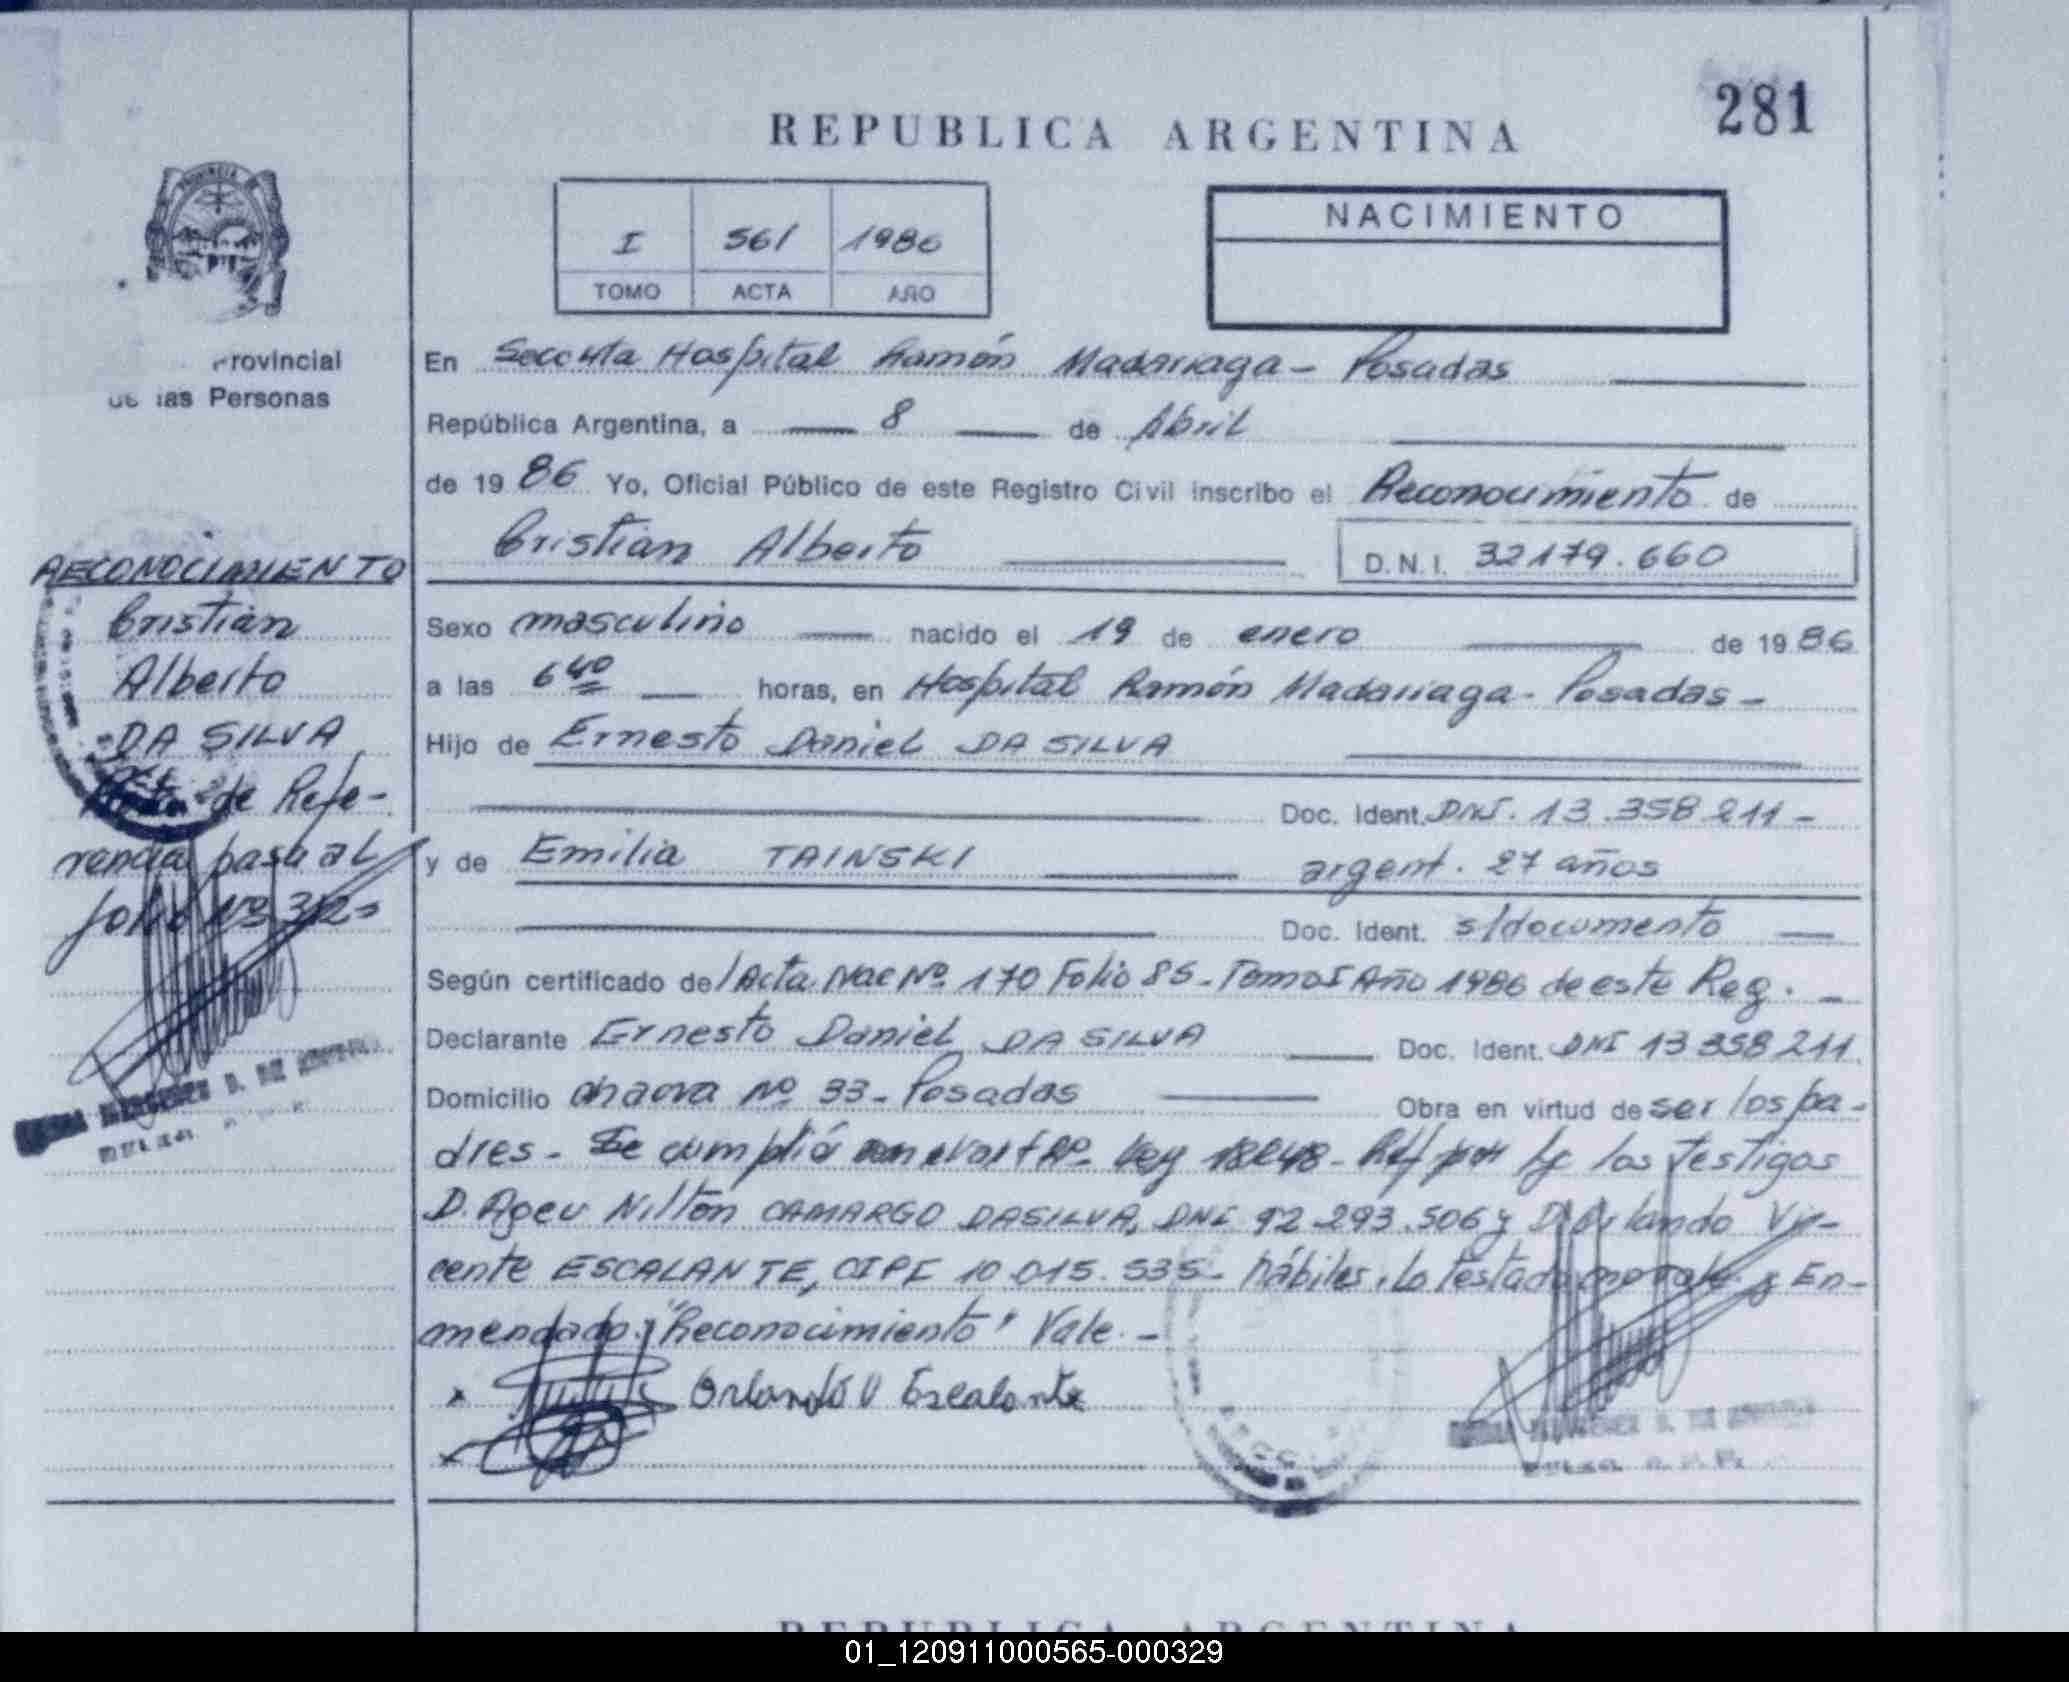 281
REPUBLICA ARGENTINA
PROVINCIA DE
I 561 1986
TOMO ACTA AÑO
NACIMIENTO
Provincial
de las Personas
En Secc 4ta Hospital Ramón Madariaga - Posadas
República Argentina, a 8 de Abril
de 1986 Yo, Oficial Público de este Registro Civil inscribo el Reconocimiento de
Cristian Alberto D.N.I. 32179.660
Sexo masculino nacido el 19 de enero de 1986
a las 6 40 horas, en Hospital Ramón Madariaga - Posadas -
Hijo de Ernesto Daniel DA SILVA
Doc. Ident. DNI. 13.358 211 -
y de Emilia TAINSKI argent. 27 años
Doc. Ident. s/documento
Según certificado de/Acta Nac Nº 170 Folio 85 - Tomo I Año 1986 de este Reg. -
Declarante Ernesto Daniel DA SILVA Doc. Ident. DNI 13 358 211.
Domicilio chacra Nº 33 - Posadas Obra en virtud de ser los pa-
dres - Se cumplió Ley 18248 - los testigos
D. Ageu Nilton CAMARGO DASILVA, DNI 92 293.506 y D. Orlando Vi-
cente ESCALANTE, CIPF 10.015.535 - hábiles. Lo testado no vale y En-
mendado: "Reconocimiento" Vale. -
Orlando V Escalante
RECONOCIMIENTO
Cristian
Alberto
DA SILVA
de Refe-
rencia pasa al
folio Nº
REPUBLICA ARGENTINA
01_120911000565-000329